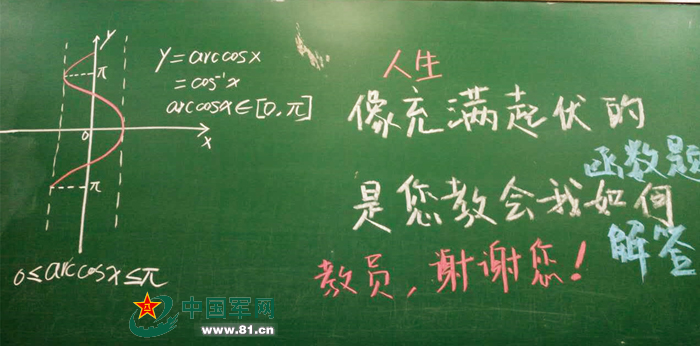 y
π
0
x
π
0≤arccosx≤π
y=arccosx
=cos⁻¹x
arccosx∈[0,π]
人生
像充满起伏的
函数题
是您教会我如何
解答
教员,谢谢您!
中国军网
www.81.cn